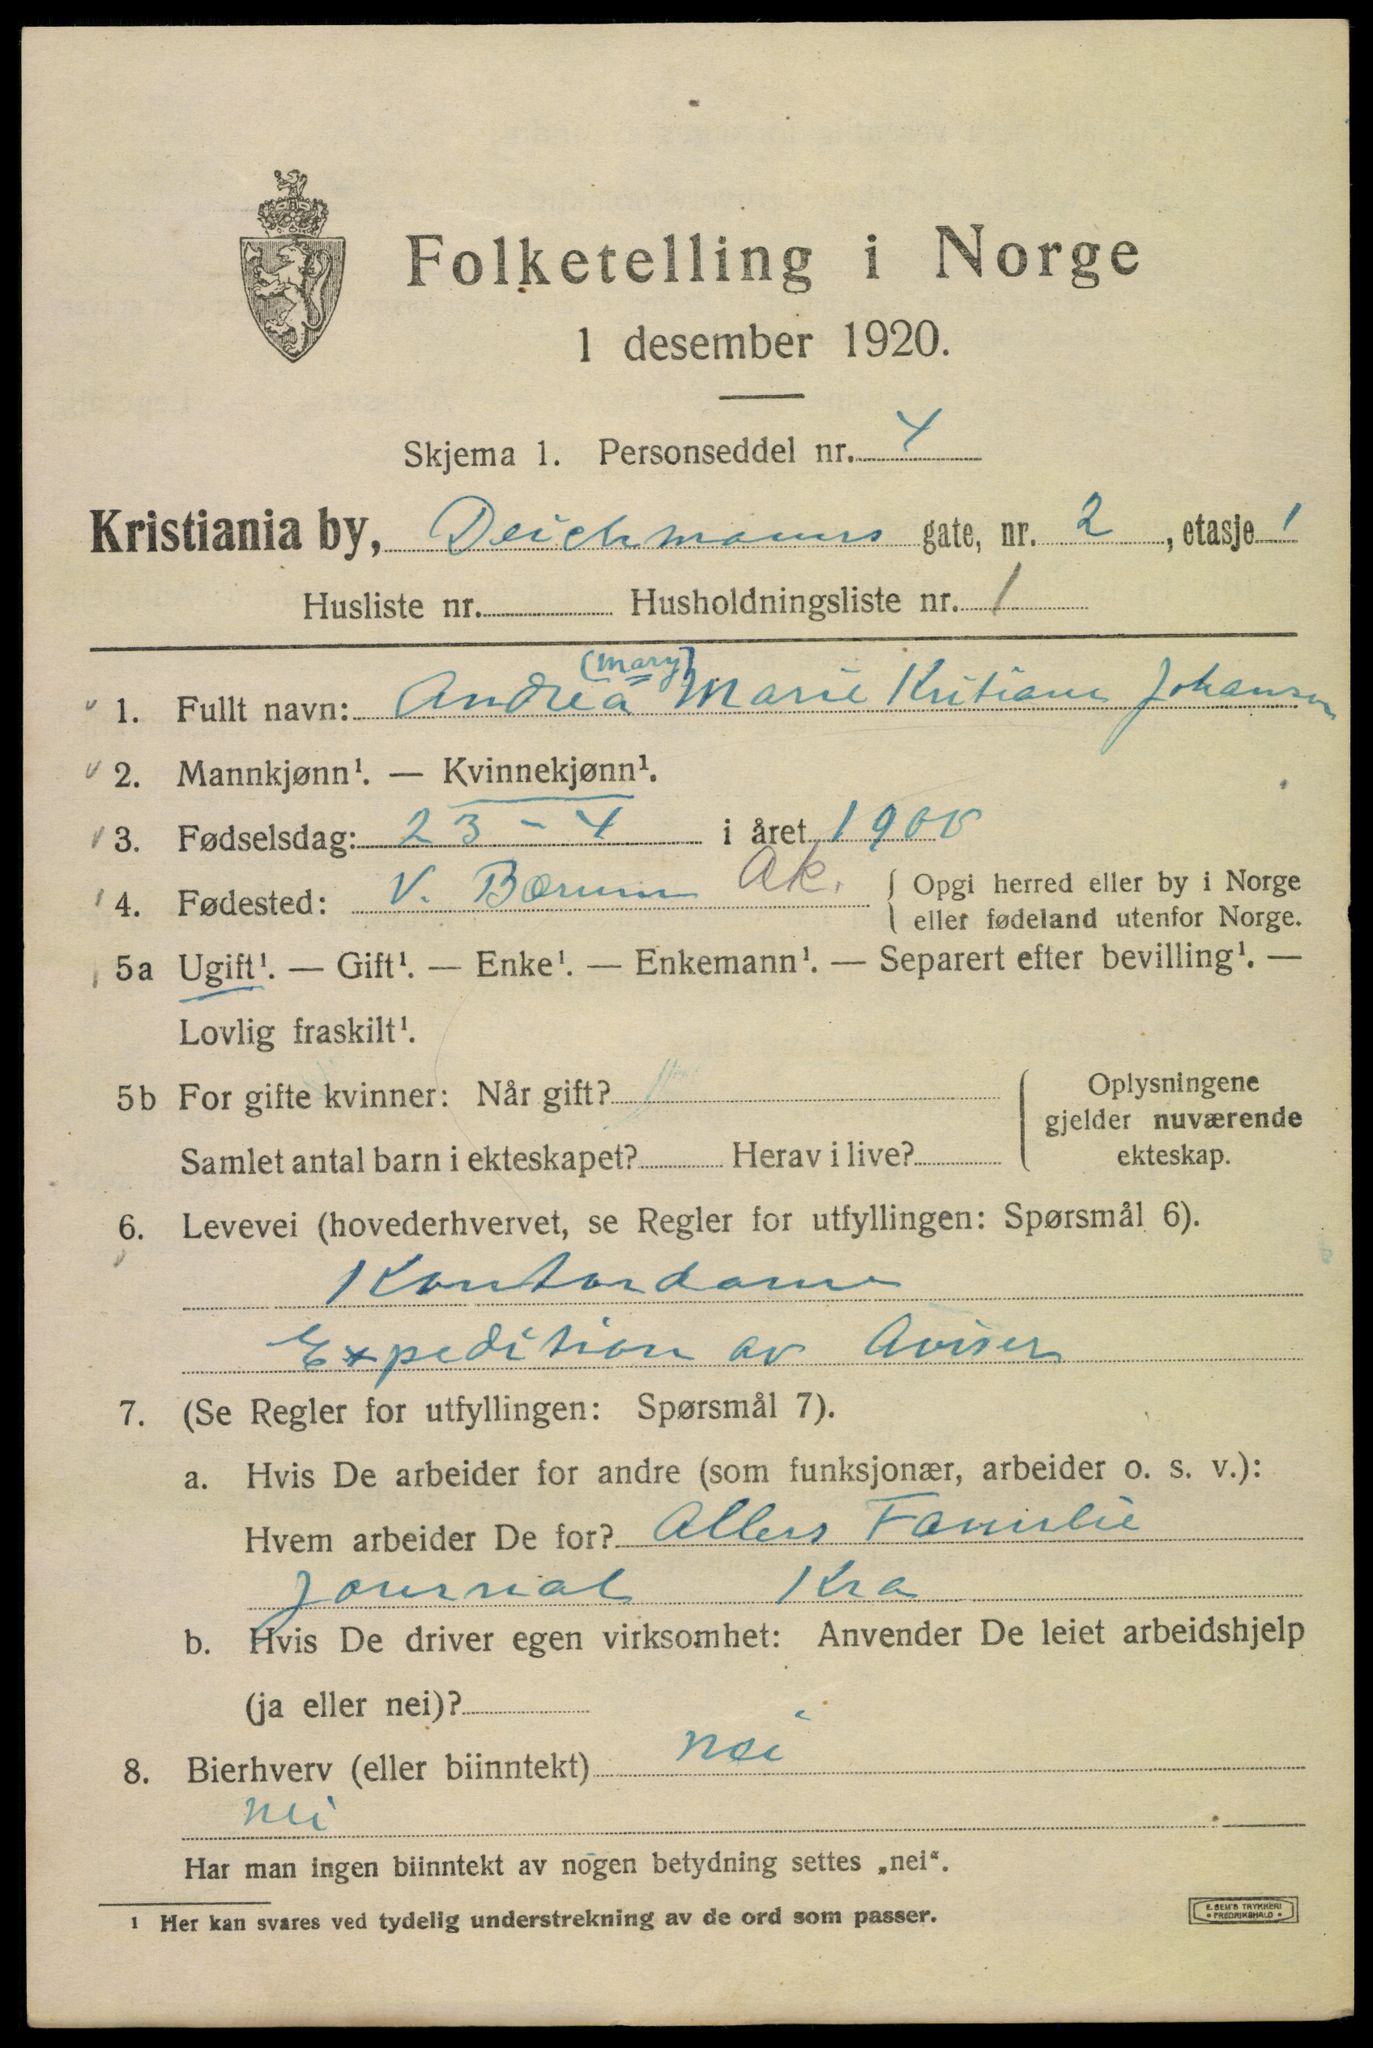 Folketelling i Norge
1 desember 1920.
Skjema 1. Personseddel nr. 4
Kristiania by, Deichmanns gate, nr. 2, etasje 1
Husliste nr. Husholdningsliste nr. 1
(Mary)
1. Fullt navn: Andrea Marie Kristiane Johansen
2. Mannkjønn¹. — Kvinnekjønn¹.
3. Fødselsdag: 23 - 4 i året 1900
4. Fødested: V. Bærum Ak. { Opgi herred eller by i Norge
eller fødeland utenfor Norge.
5a Ugift¹. — Gift¹. — Enke¹. — Enkemann¹. — Separert efter bevilling¹. —
Lovlig fraskilt¹.
5b For gifte kvinner: Når gift?
Samlet antal barn i ekteskapet? Herav i live?
Oplysningene
gjelder nuværende
ekteskap.
6. Levevei (hovederhvervet, se Regler for utfyllingen: Spørsmål 6).
Kontordame
Expedition av Aviser
7. (Se Regler for utfyllingen: Spørsmål 7).
a. Hvis De arbeider for andre (som funksjonær, arbeider o. s. v.):
Hvem arbeider De for? Allers Familie
Journal Kra
b. Hvis De driver egen virksomhet: Anvender De leiet arbeidshjelp
(ja eller nei)?
8. Bierhverv (eller biinntekt) nei
nei
Har man ingen biinntekt av nogen betydning settes „nei“.
¹ Her kan svares ved tydelig understrekning av de ord som passer.
E. SEM'S TRYKKERI
• FREDRIKSHALD •